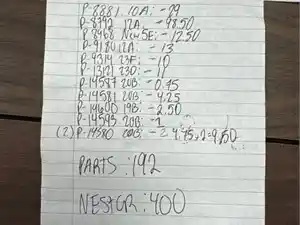 P-8881 10A: - 99
P-8792 12A: - 98.50
P-8968 New 5E: - 12.50
P-9180 12A: - 13
P-9314 23F: - 10
P-1312 23D: - 10
P-14587 20B: - 0.75
P-14581 20B: - 4.25
P-14600 19B: - 2.50
P-14595 20B: - 1
(2) P-14580 20B: - 2 4.75
PARTS: 192
NESTOR: 400